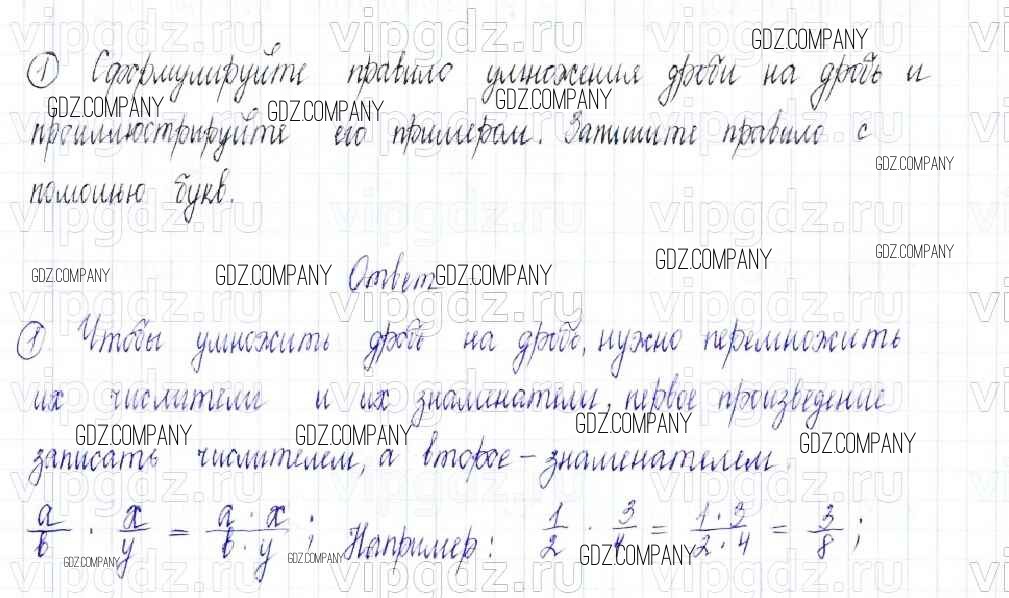 ① Сформулируйте правило умножения дроби на дробь и
проиллюстрируйте его примером. Запишите правило с
помощью букв.
Ответ
① Чтобы умножить дробь на дробь, нужно перемножить
их числители и их знаменатели, первое произведение
записать числителем, а второе – знаменателем.
a/b · x/y = a · x/b · y ; Например: 1/2 · 3/4 = 1 · 3/2 · 4 = 3/8 ;